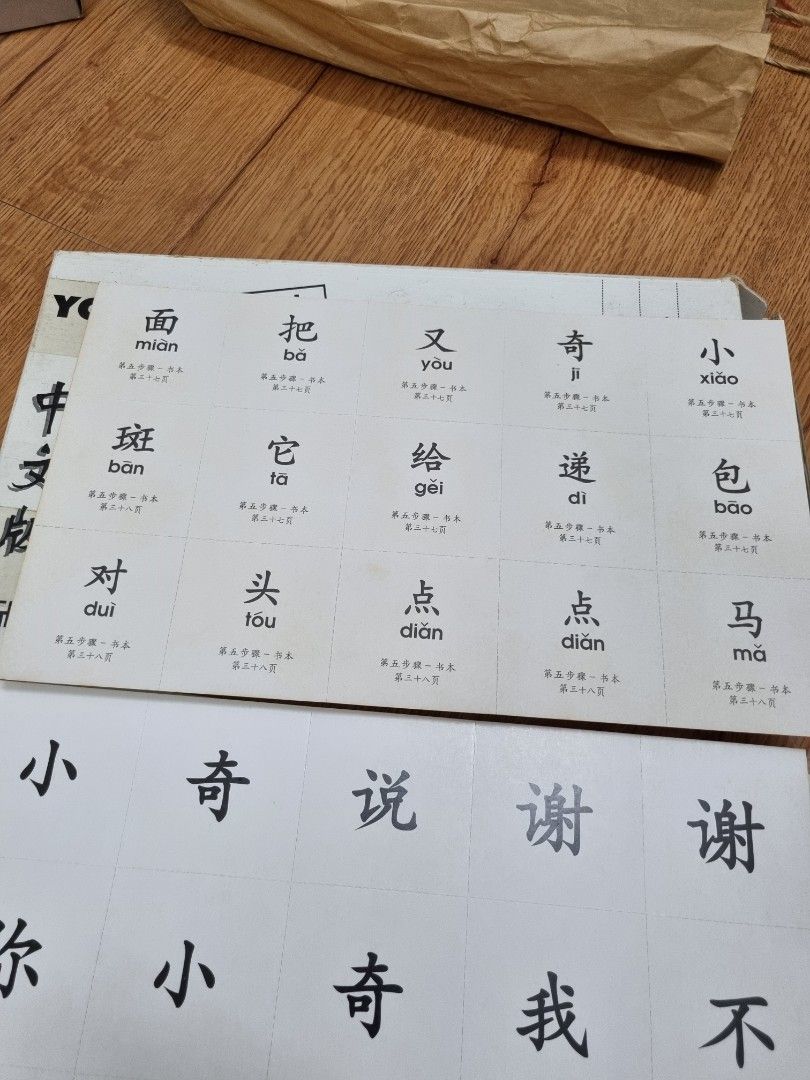 YO
中
文
版
面 把 又 奇 小
miàn bǎ yòu jī xiǎo
第五步骤－书本 第五步骤－书本 第五步骤－书本 第五步骤－书本 第五步骤－书本
第三十七页 第三十七页 第三十七页 第三十七页 第三十七页
斑 它 给 递 包
bān tā gěi dì bāo
第五步骤－书本 第五步骤－书本 第五步骤－书本 第五步骤－书本 第五步骤－书本
第三十八页 第三十七页 第三十七页 第三十七页 第三十七页
对 头 点 点 马
duì tóu diǎn diǎn mǎ
第五步骤－书本 第五步骤－书本 第五步骤－书本 第五步骤－书本 第五步骤－书本
第三十八页 第三十八页 第三十八页 第三十八页 第三十八页
小 奇 说 谢 谢
你 小 奇 我 不